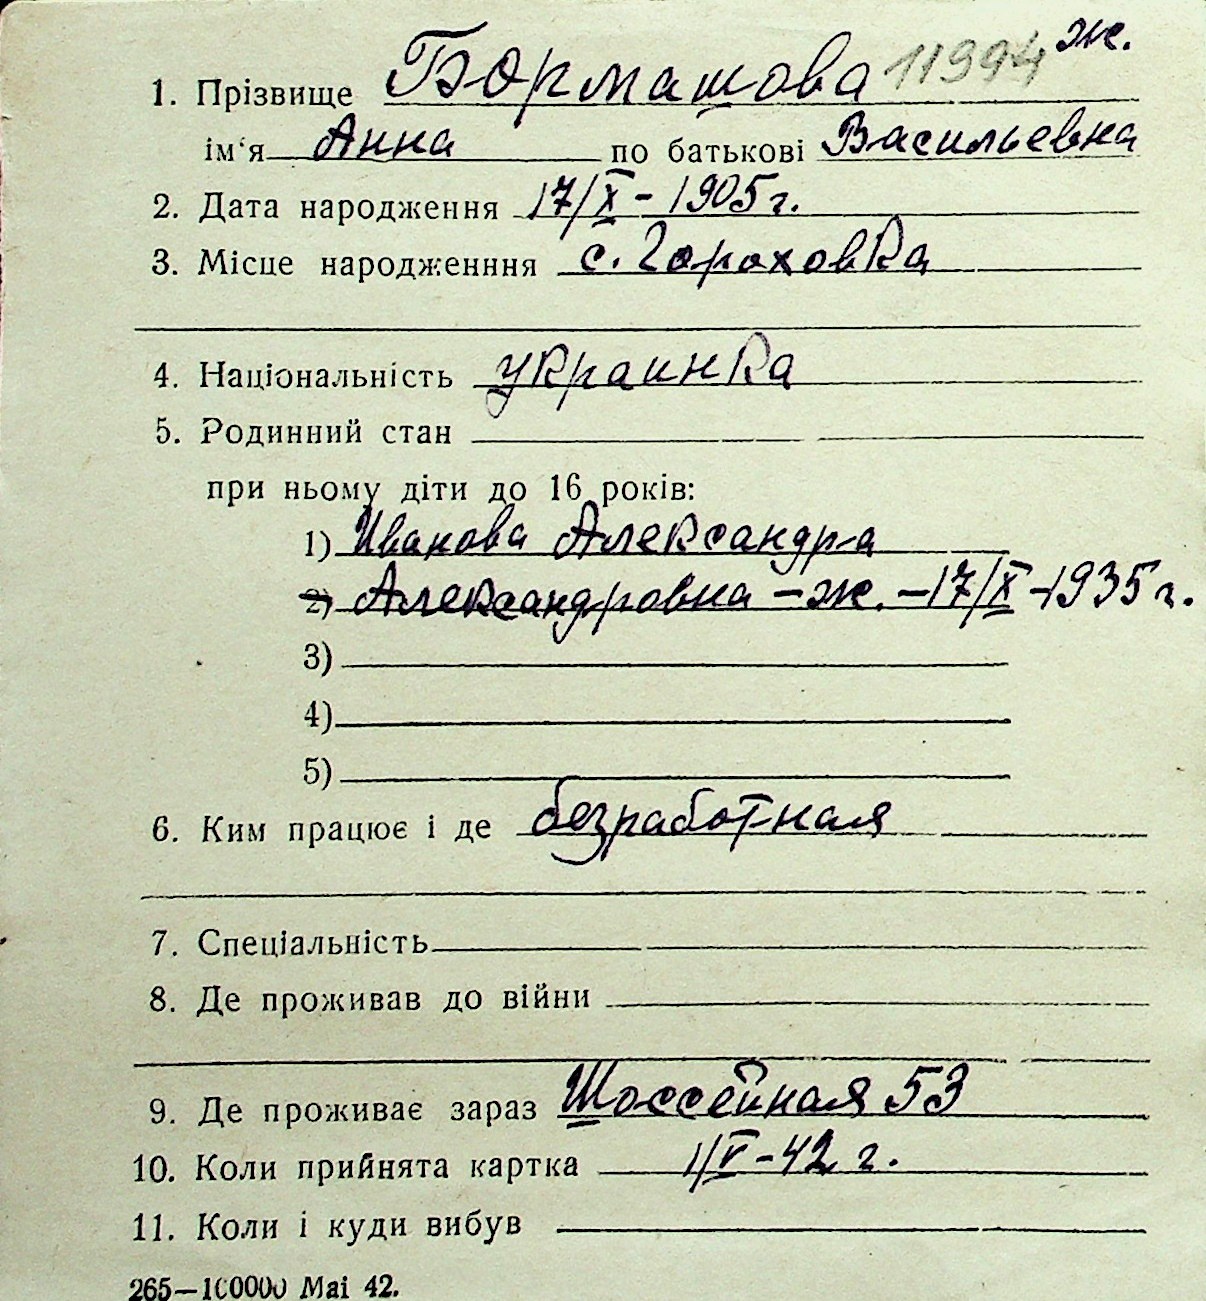 ж.
1. Прізвище Бормашова 11994
ім‘я Анна по батькові Васильевна
2. Дата народження 17/X - 1905 г.
3. Місце народженння с. Гороховка
4. Національність украинка
5. Родинний стан
при ньому діти до 16 років:
1) Иванова Александра
2) Александровна - ж. - 17/X - 1935 г.
3)
4)
5)
6. Ким працює і де безработная
7. Спеціальність
8. Де проживав до війни
9. Де проживає зараз Шоссейная 53
10. Коли прийнята картка 1/V - 42 г.
11. Коли і куди вибув
265—100000 Mai 42.